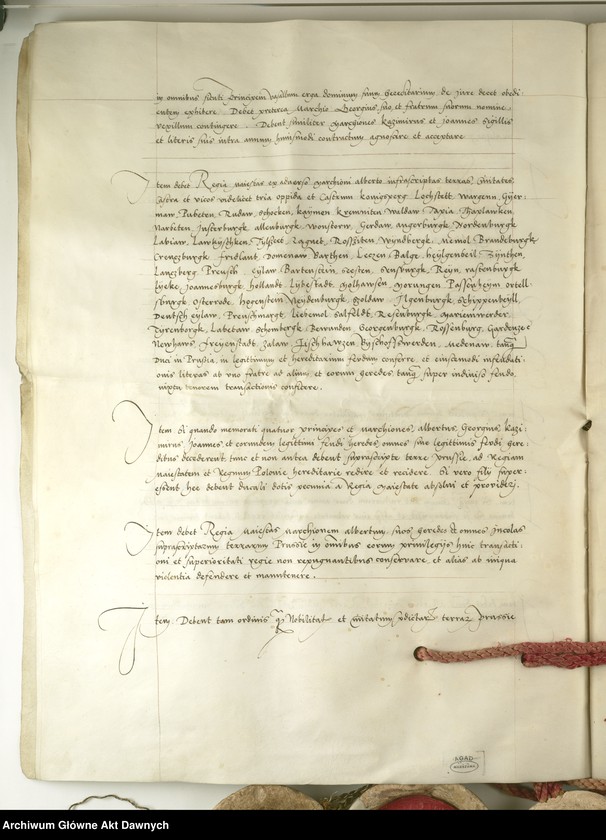 in omnibus sicuti Principem vasallum erga dominum suum hereditarium de jure decet obedi-
entem exhibere. Debet preterea Marchio Georgius suo et fratrum suorum nomine
vexillum contingere. Debent similiter Marchiones Kazimirus et Joannes sigillis
et literis suis intra annum huiusmodi contractum agnoscere et acceptare
Item debet Regia Maiestas ex adverso Marchioni Alberto infrascriptas terras Civitates
Castra et vicos videlicet tria oppida et Castrum konigsperg Lochstett Wargenn Gyer-
maw Pubeten Rudaw schocken kaymen kremniten Waldaw Taxia Thaplawken
Narbiten Insterburgk allenburgk Wonstorn Gerdaw angerburgk Nordenburgk
Labiaw Lawkyschken Tylseet Ragnet Rossiten Wyndbergk Memol Brandeburgk
Creuzburgk fridlant Domenaw Barthen Leczen Balge heylgenbeil Zynthen
Lanczberg Preusch eylaw Bartenstein seesten sensburgk Reyn rastenburgk
lycke Joannesburgk hollandt Lybestadt Molhawsen Morungen Passenheym ortell-
sburgk Osterrode hogenstein Neydenburgk Soldaw Ilgenburgk schippenbeyll
Deutsch eylaw Preuschmargt liebemol salfeldt Resenburgk Marienwerder
Tyrenborgk Labetaw schonbergk Georgenburgk Rossenburg Gardenzee
Newhaws freyenstadt Salaw Fischhawzen Byschoffswerden Medenaw tanq
Duci in Prussia in legittimum et hereditarium feudum conferre et eiusmodi infeudati-
onis literas ab uno fratre ad alium et eorum heredes tanq super indiviso feudo
iuxta tenorem transactionis conficere.
Item Si quando memorati quatuor principes et Marchiones, albertus, Georgius, kazi-
mirus Joannes et eorumdem legittimi feudi heredes omnes sine legittimis feudi here-
dibus decederent tunc et non antea debent suprascripte terre Prussie ad Regiam
maiestatem et Regnum Polonie hereditarie redire et recidere. Si vero filie super-
essent hee debent ducali dotis pecunia a Regia Maiestate absolvi et provideri.
Item debet Regia Maiestas Marchionem albertum suos heredes et omnes Incolas
suprascriptarum terrarum Prussie in omnibus eorum privilegijs huic transacti-
oni et superioritati regie non repugnantibus conservare et alias ab iniqua
violentia defendere et manutenere.
Item Debent tam ordinis q Nobilitat et Civitatum terrar prussie
AGAD
WARSZAWA
Archiwum Główne Akt Dawnych